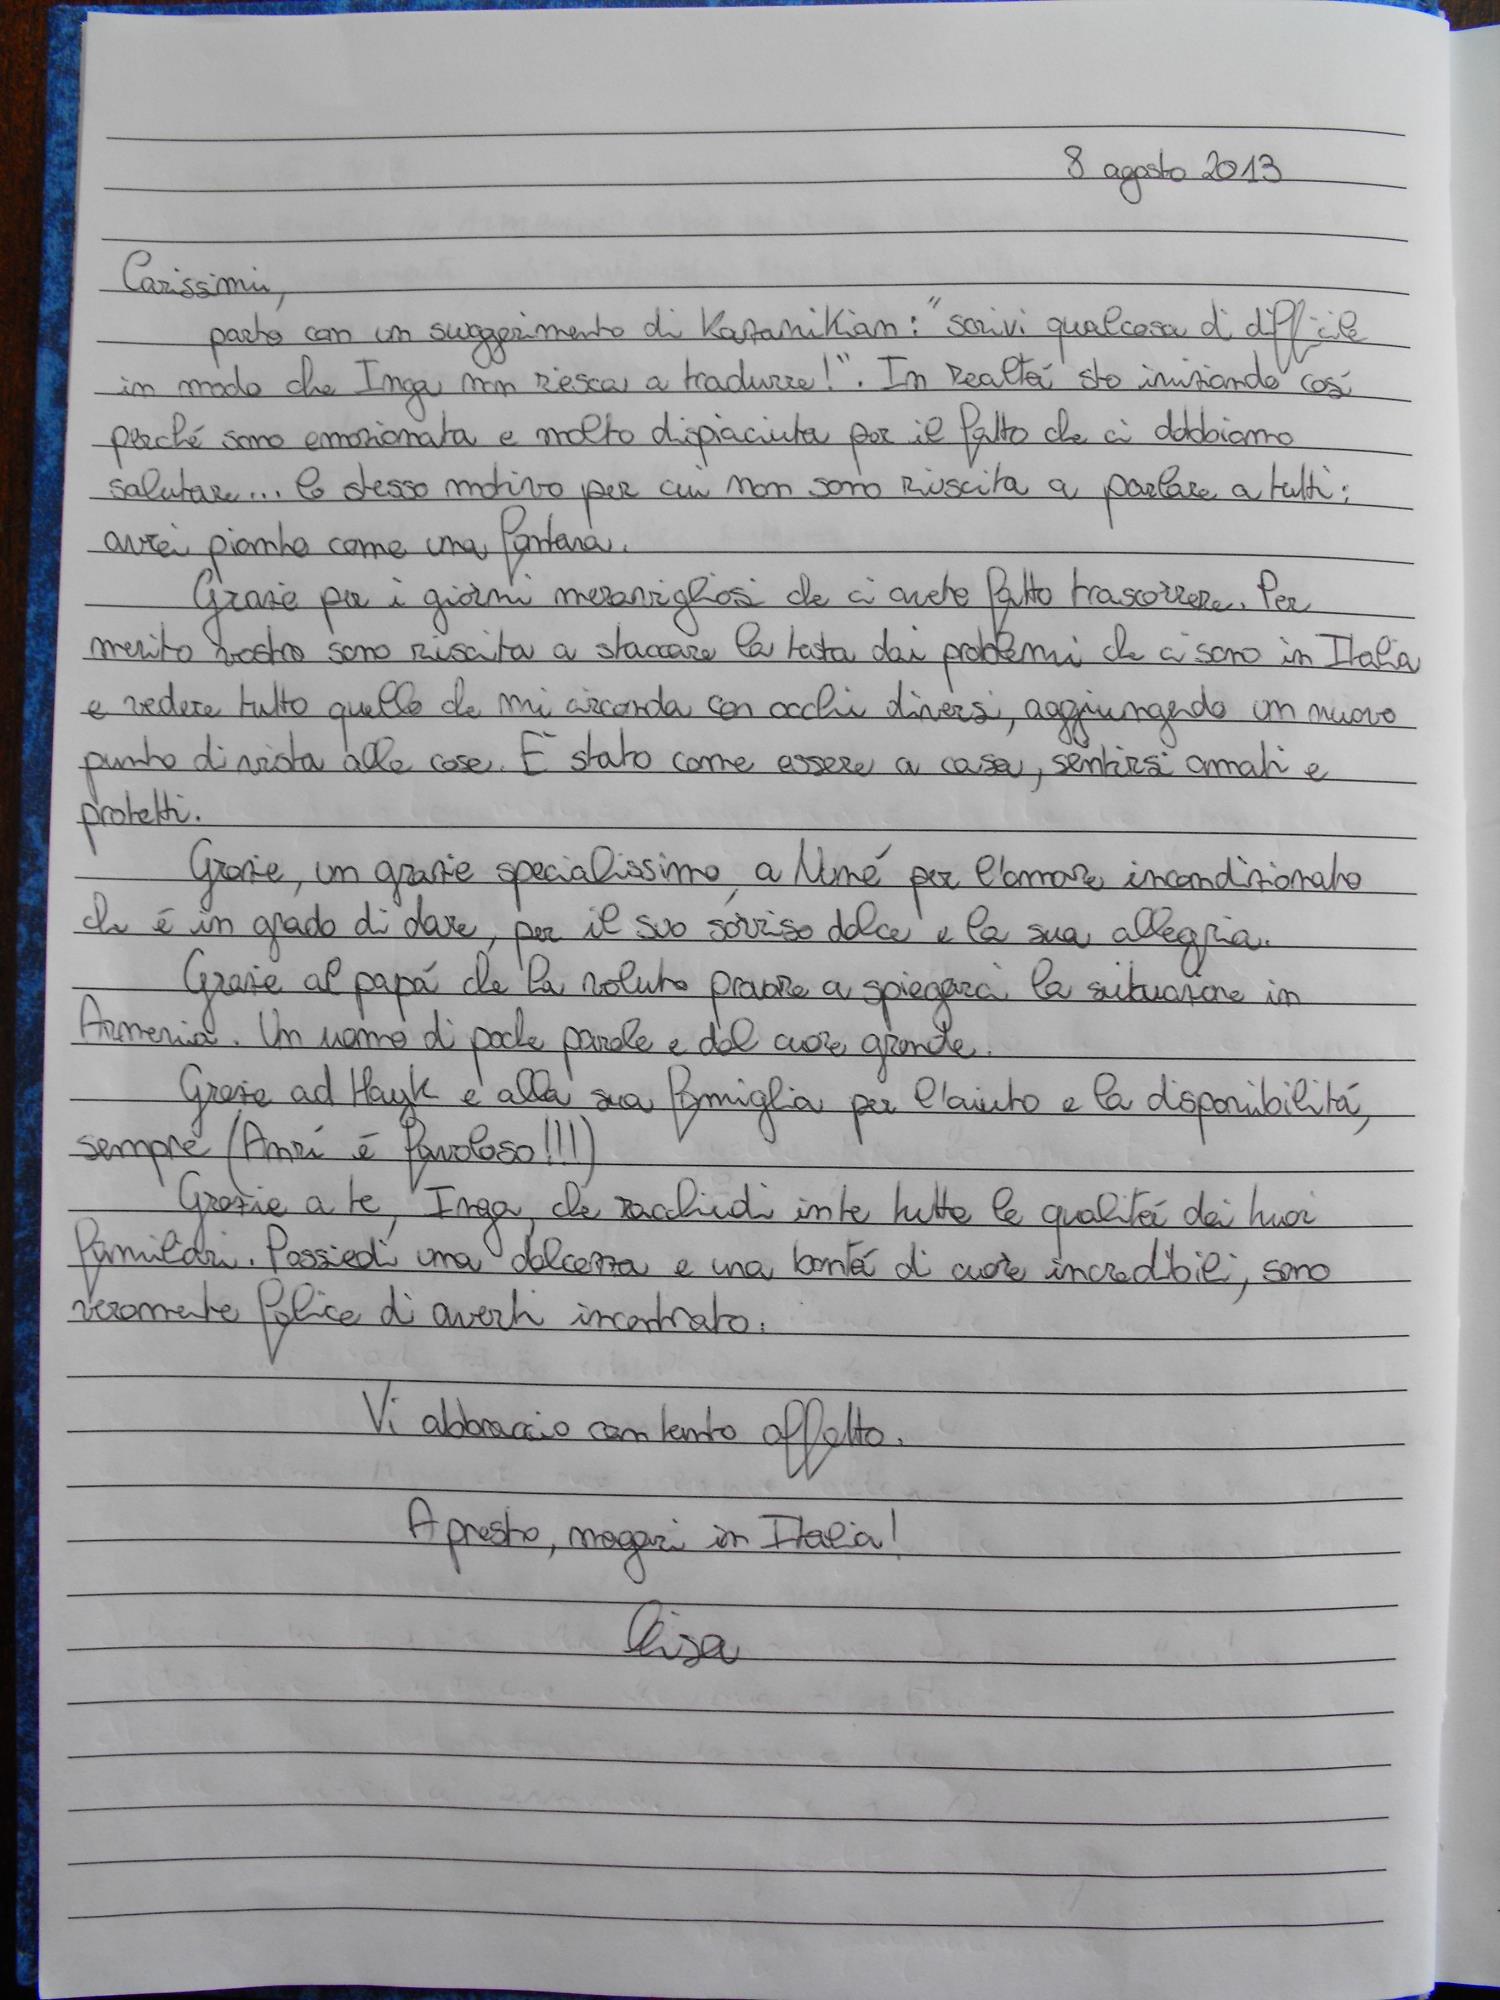 8 agosto 2013
Carissimi,
parto con un suggerimento di Kazanikian: "scrivi qualcosa di difficile
in modo che Inga non riesca a tradurre!". In realtá sto iniziando cosí
perché sono emozionata e molto dispiaciuta per il fatto che ci dobbiamo
salutare... lo stesso motivo per cui non sono riuscita a parlare a tutti:
avrei pianto come una fontana.
Grazie per i giorni meravigliosi che ci avete fatto trascorrere. Per
merito vostro sono riuscita a staccare la testa dai problemi che ci sono in Italia
e vedere tutto quello che mi circonda con occhi diversi, aggiungendo un nuovo
punto di vista alle cose. É stato come essere a casa, sentirsi amati e
protetti.
Grazie, un grazie specialissimo, a Nuné per l'amore incondizionato
che é in grado di dare, per il suo sorriso dolce e la sua allegria.
Grazie al papá che ha voluto provare a spiegarci la situazione in
Armenia. Un uomo di poche parole e dal cuore grande.
Grazie ad Hayk e alla sua famiglia per l'aiuto e la disponibilitá,
sempre (Anri é favoloso!!!)
Grazie a te, Inga, che racchiudi in te tutte le qualitá dei tuoi
familiari. Possiedi una dolcezza e una bontá di cuore incredibili, sono
veramente felice di averti incontrato.
Vi abbraccio con tanto affetto.
A presto, magari in Italia!
Elisa